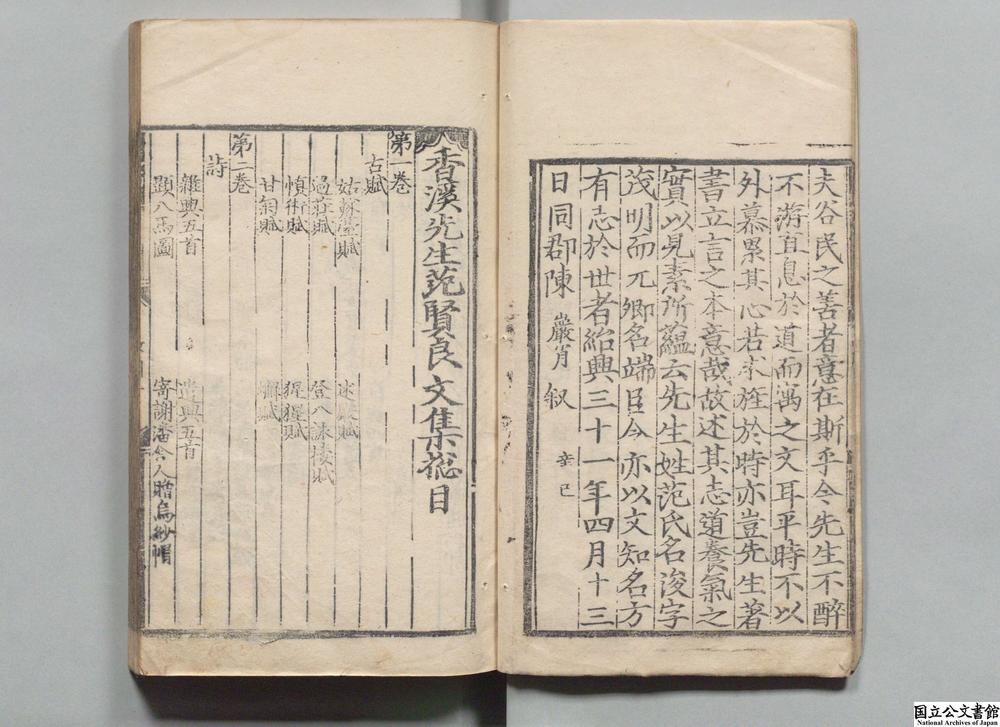 夫谷民之善者意在斯乎今先生不醉
不游直息於道而寓之文耳平時不以
外慕累其心若求旌於時亦豈先生著
書立言之本意哉故述其志道養氣之
實以見素所蘊云先生姓范氏名浚字
茂明而兀卿名端臣今亦以文知名方
有志於世者紹興三十一年四月十三
日同郡陳 巖肖 叙 辛巳
香溪先生范賢良文集総目
第一巻
古賦
姑蘇臺賦
過莊賦 登八詠樓賦
慎術賦 猩猩賦
甘菊賦 蠏賦
第二巻
詩
雜興五首 遣興五首
題八馬圖 寄謝潘舍人贈烏紗帽
国立公文書館
National Archives of Japan